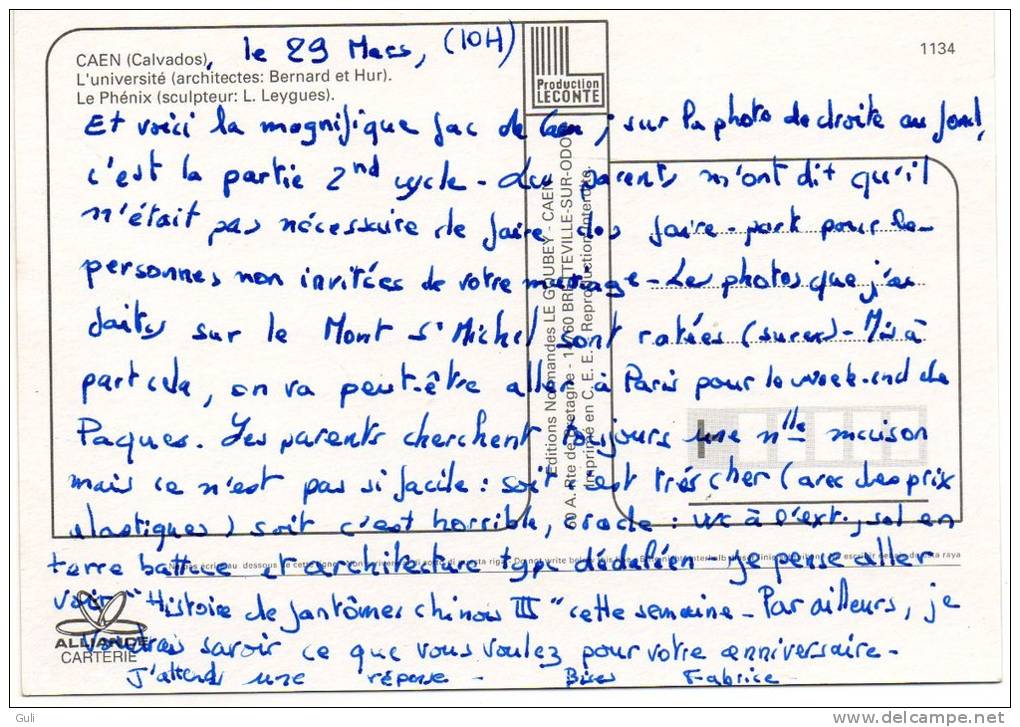 CAEN (Calvados), le 29 Mars, (10H)
L'université (architectes: Bernard et Hur).
Le Phénix (sculpteur: L. Leygues).
1134
Production
LECONTE
Et voici la magnifique fac de Caen, sur la photo de droite au fond,
c'est la partie 2nd cycle - Les parents m'ont dit qu'il
n'était pas nécessaire de faire des faire-part pour les
personnes non invitées de votre mariage - Les photos que j'ai
faites sur le Mont St Michel sont ratées (surex) - Mis à
part cela, on va peut-être aller à Paris pour le week-end de
Paques. Les parents cherchent toujours une nlle maison
mais ce n'est pas si facile : soit c'est très cher (avec des prix
élastiques) soit c'est horrible, crade : WC à l'ext., sol en
terre battue et architecture type dédaléen - Je pense aller
voir "Histoire de fantômes chinois III" cette semaine - Par ailleurs, je
voudrais savoir ce que vous voulez pour votre anniversaire -
J'attends une réponse - Bises Fabrice -
Editions Normandes LE GOUBEY - CAEN
60 A. Rte de Bretagne - 14760 BRETTEVILLE-SUR-ODON
Imprimé en C. E. E. Reproduction interdite.
ALLIANCE
CARTERIE
Guli
delcampe.net